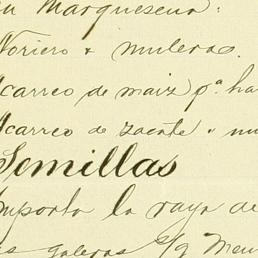 Marquesena:
Noriero & muleros.
Acarreo de maiz pª ha
Acarreo de zacate " mu
Semillas
Importa la raya de
as galeras s/g Mem